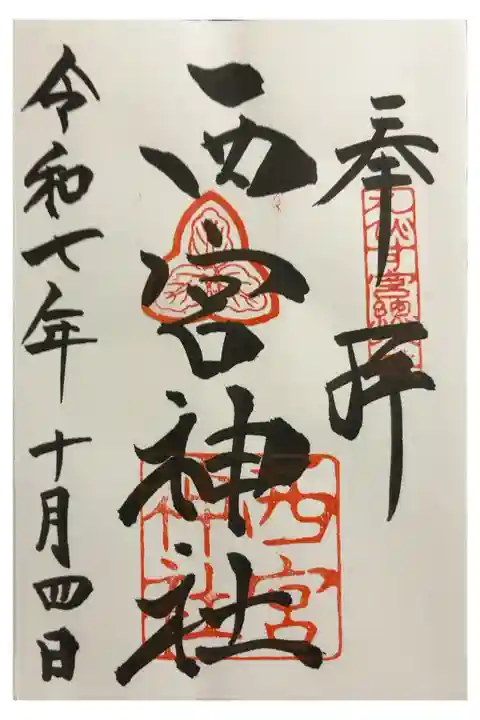 奉拝
えびす宮総
西宮神社
西宮
神社
令和七年 十月四日